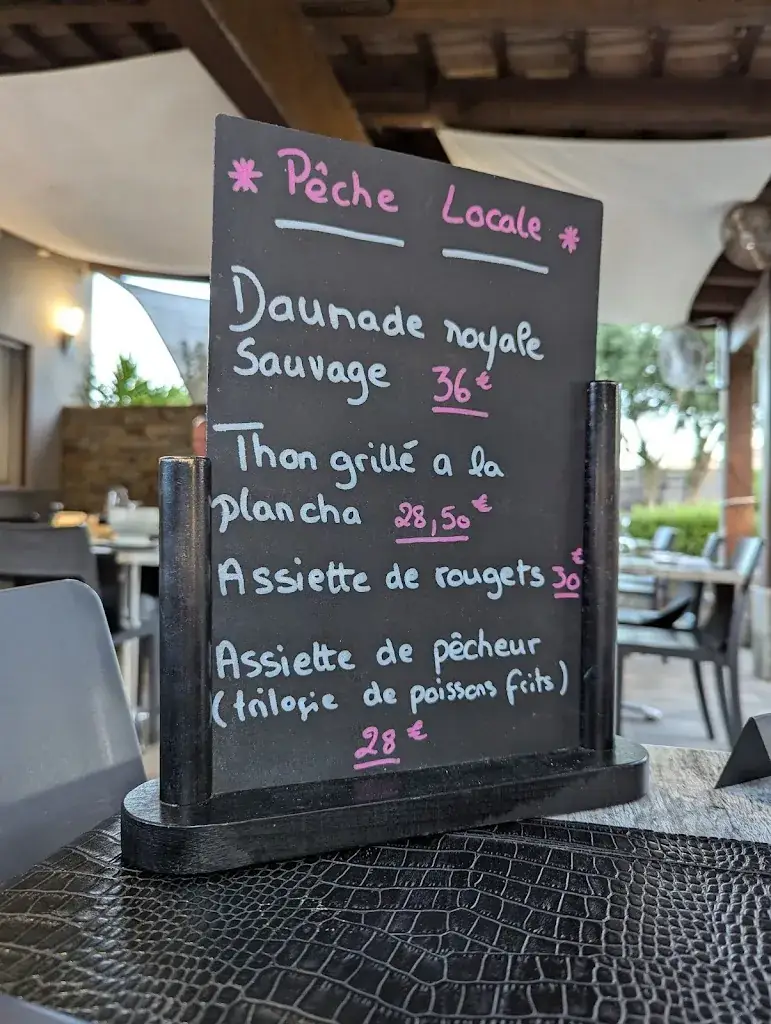 * Pêche Locale *
Daurade royale
Sauvage 36€
Thon grillé a la
plancha 28,50€
Assiette de rougets 30€
Assiette de pêcheur
(trilogie de poissons frits)
28€